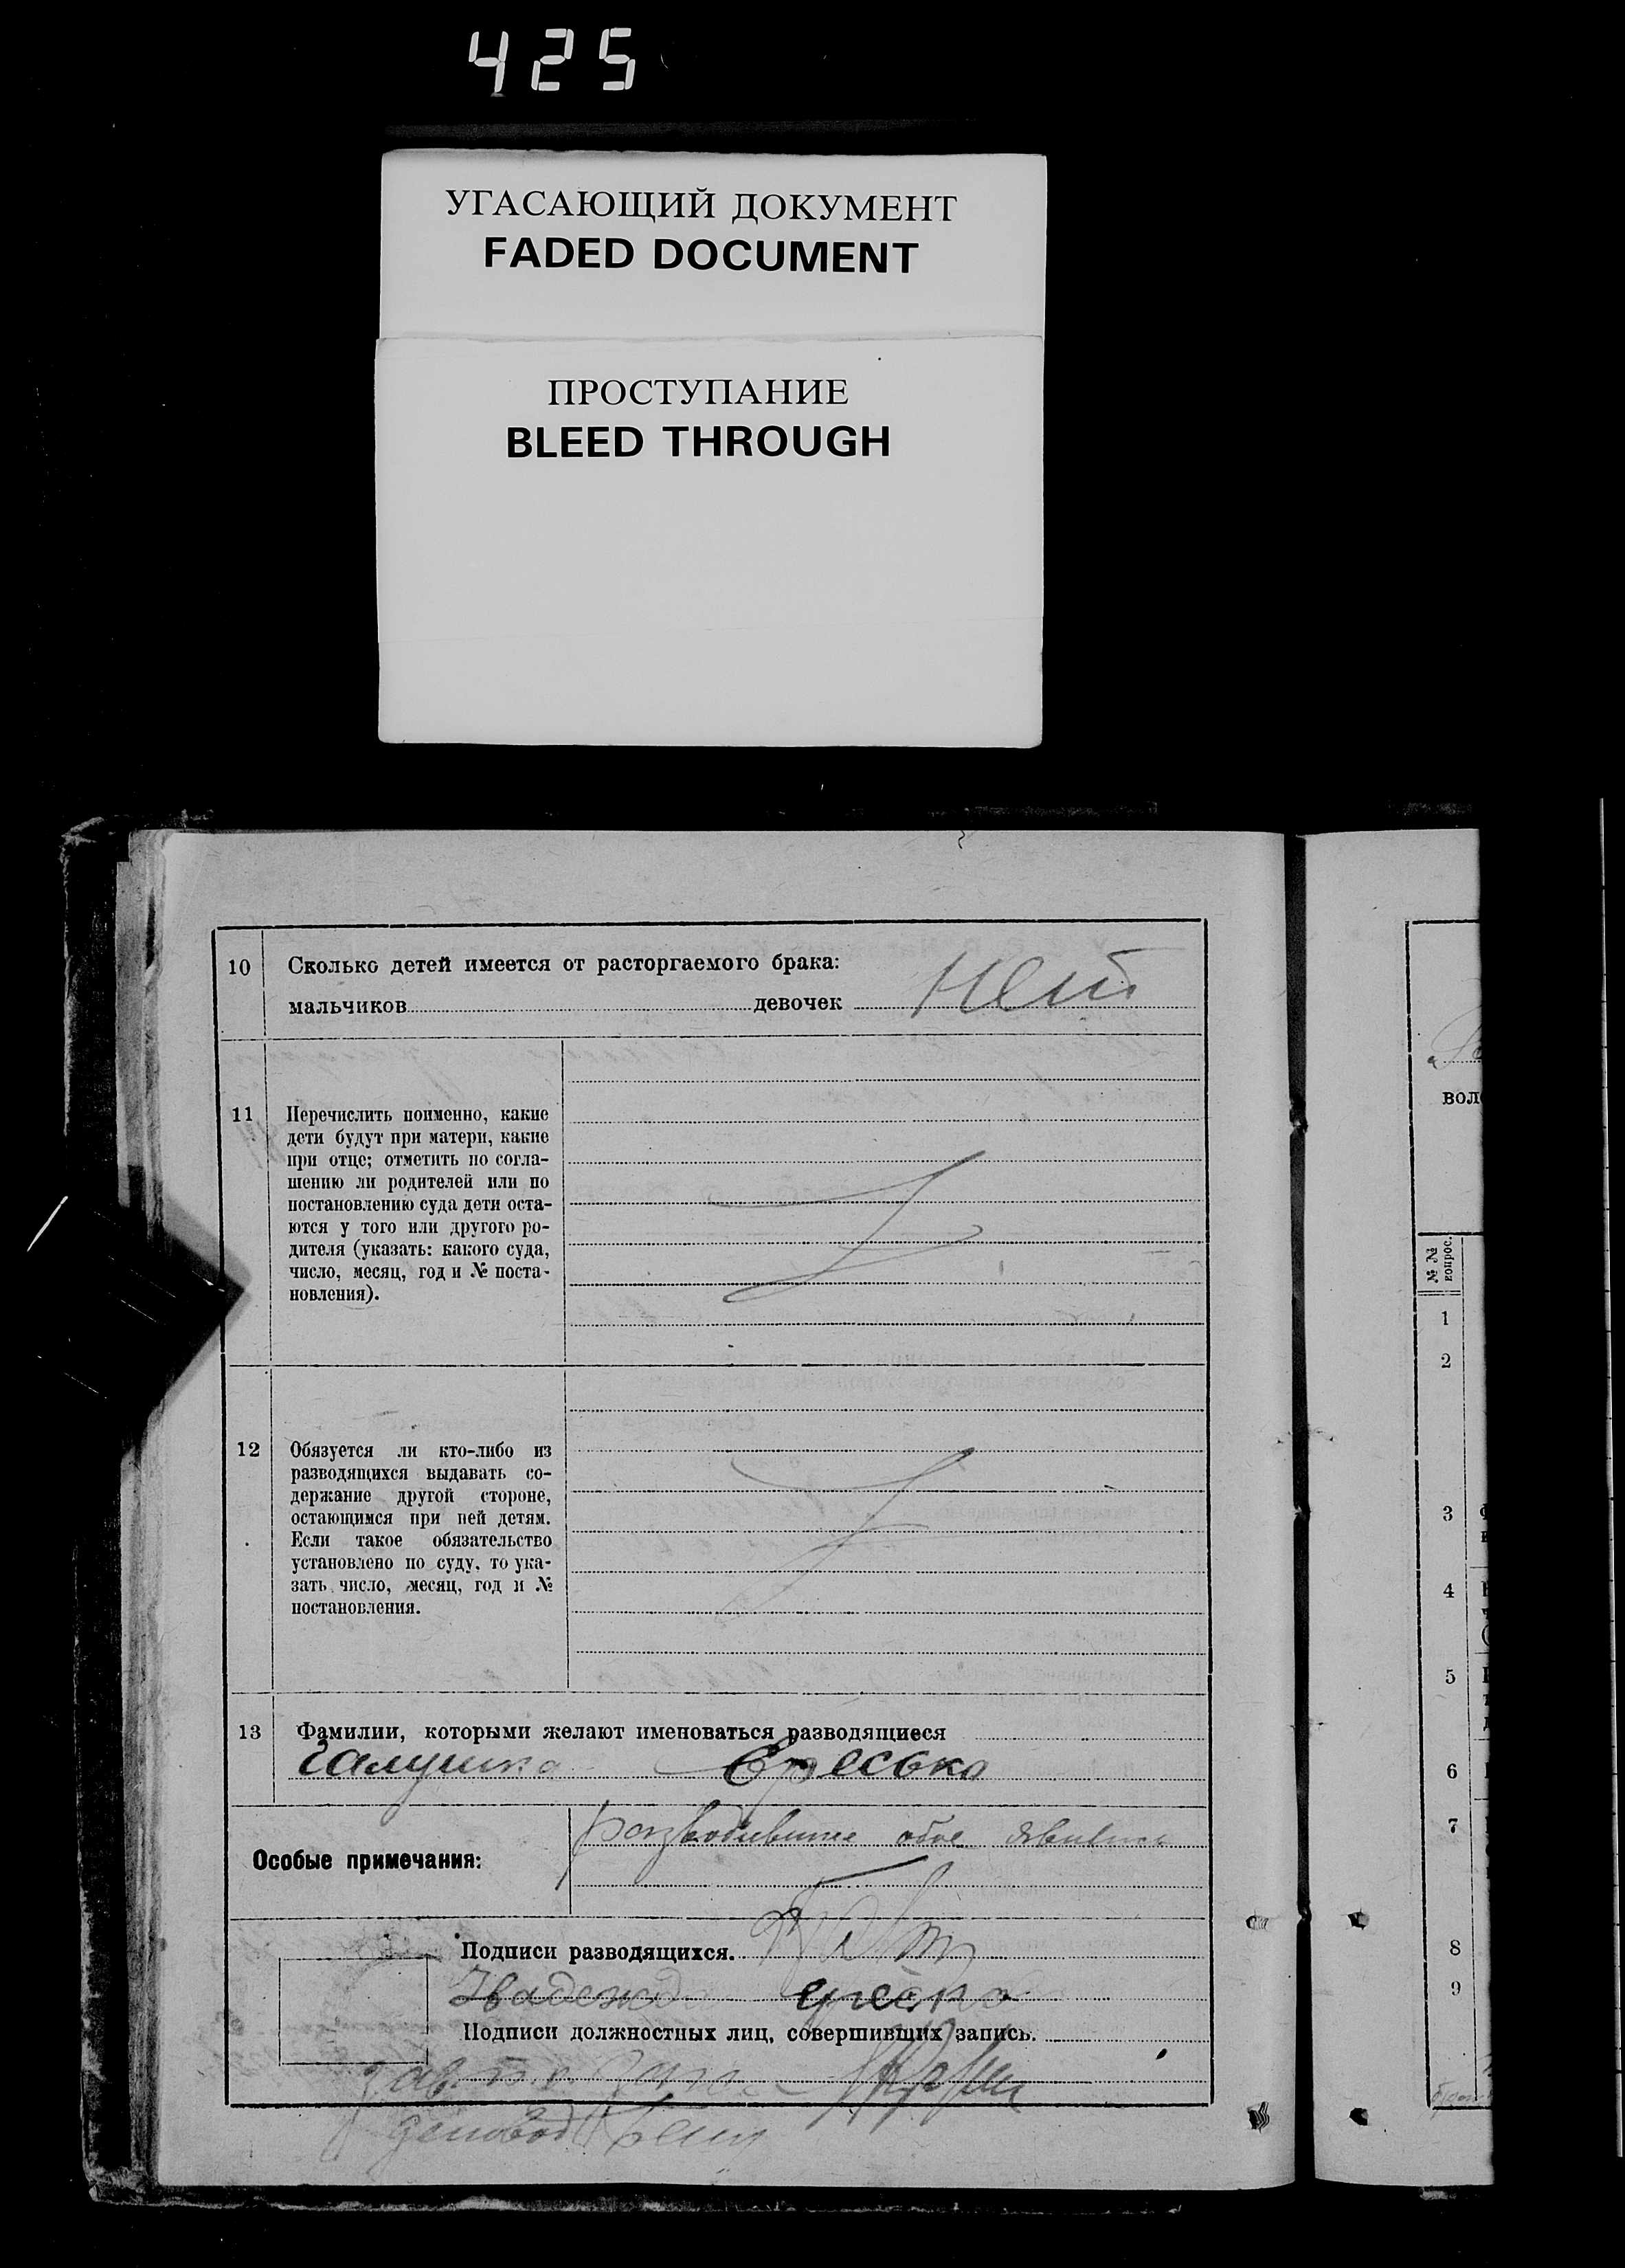 425
УГАСАЮЩИЙ ДОКУМЕНТ
FADED DOCUMENT
ПРОСТУПАНИЕ
BLEED THROUGH
10 Сколько детей имеется от расторгаемого брака:
мальчиков девочек Нет
11 Перечислить поименно, какие
дети будут при матери, какие
при отце; отметить по согла-
шению ли родителей или по
постановлению суда дети оста-
ются у того или другого ро-
дителя (указать: какого суда,
число, месяц, год и № поста-
новления).
12 Обязуется ли кто-либо из
разводящихся выдавать со-
держание другой стороне,
остающимся при ней детям.
Если такое обязательство
установлено по суду, то ука-
зать число, месяц, год и №
постановления.
13 Фамилии, которыми желают именоваться разводящиеся
Галушка Ересько
Особые примечания:
обое
Подписи разводящихся.
Подписи должностных лиц, совершивших запись.
Зав.
Деловод
вол
№ №
вопрос.
1
2
3
4
5
6
7
8
9